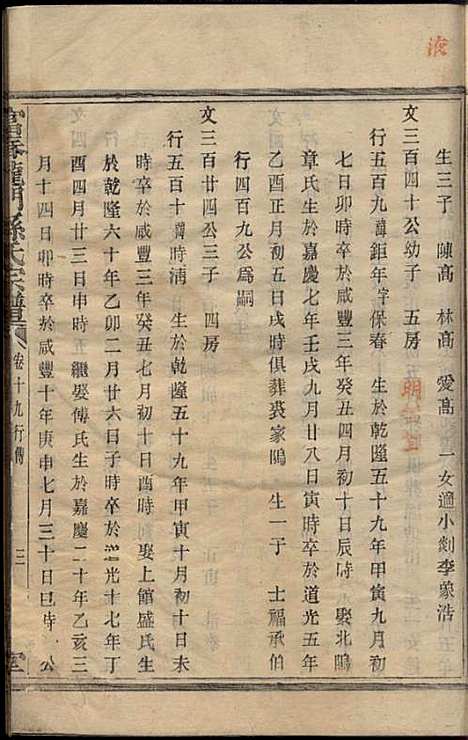 液
生三子 陳高 林高 愛高 一女適小剡李蒙浩
文三百四十公幼子 五房
行五百九諱鉅年字保春 生於乾隆五十九年甲寅九月初
七日卯時卒於咸豐三年癸丑四月初十日辰時 娶北鳴
章氏生於嘉慶七年壬戌九月廿八日寅時卒於道光五年
乙酉正月初五日戌時俱葬裘家鳴 生一子 士福承伯
行四百九公爲嗣
文三百廿四公三子 四房
行五百十諱時淸 生於乾隆五十九年甲寅十月初十日未
時卒於咸豐三年癸丑七月初十日酉時 娶上館盛氏生
於乾隆六十年乙卯二月廿六日子時卒於道光十七年丁
酉四月廿三日申時 繼娶傅氏生於嘉慶二十年乙亥三
月十四日卯時卒於咸豐十年庚申七月三十日巳時 公
龍門孫氏宗譜
卷十九行傳
三
堂